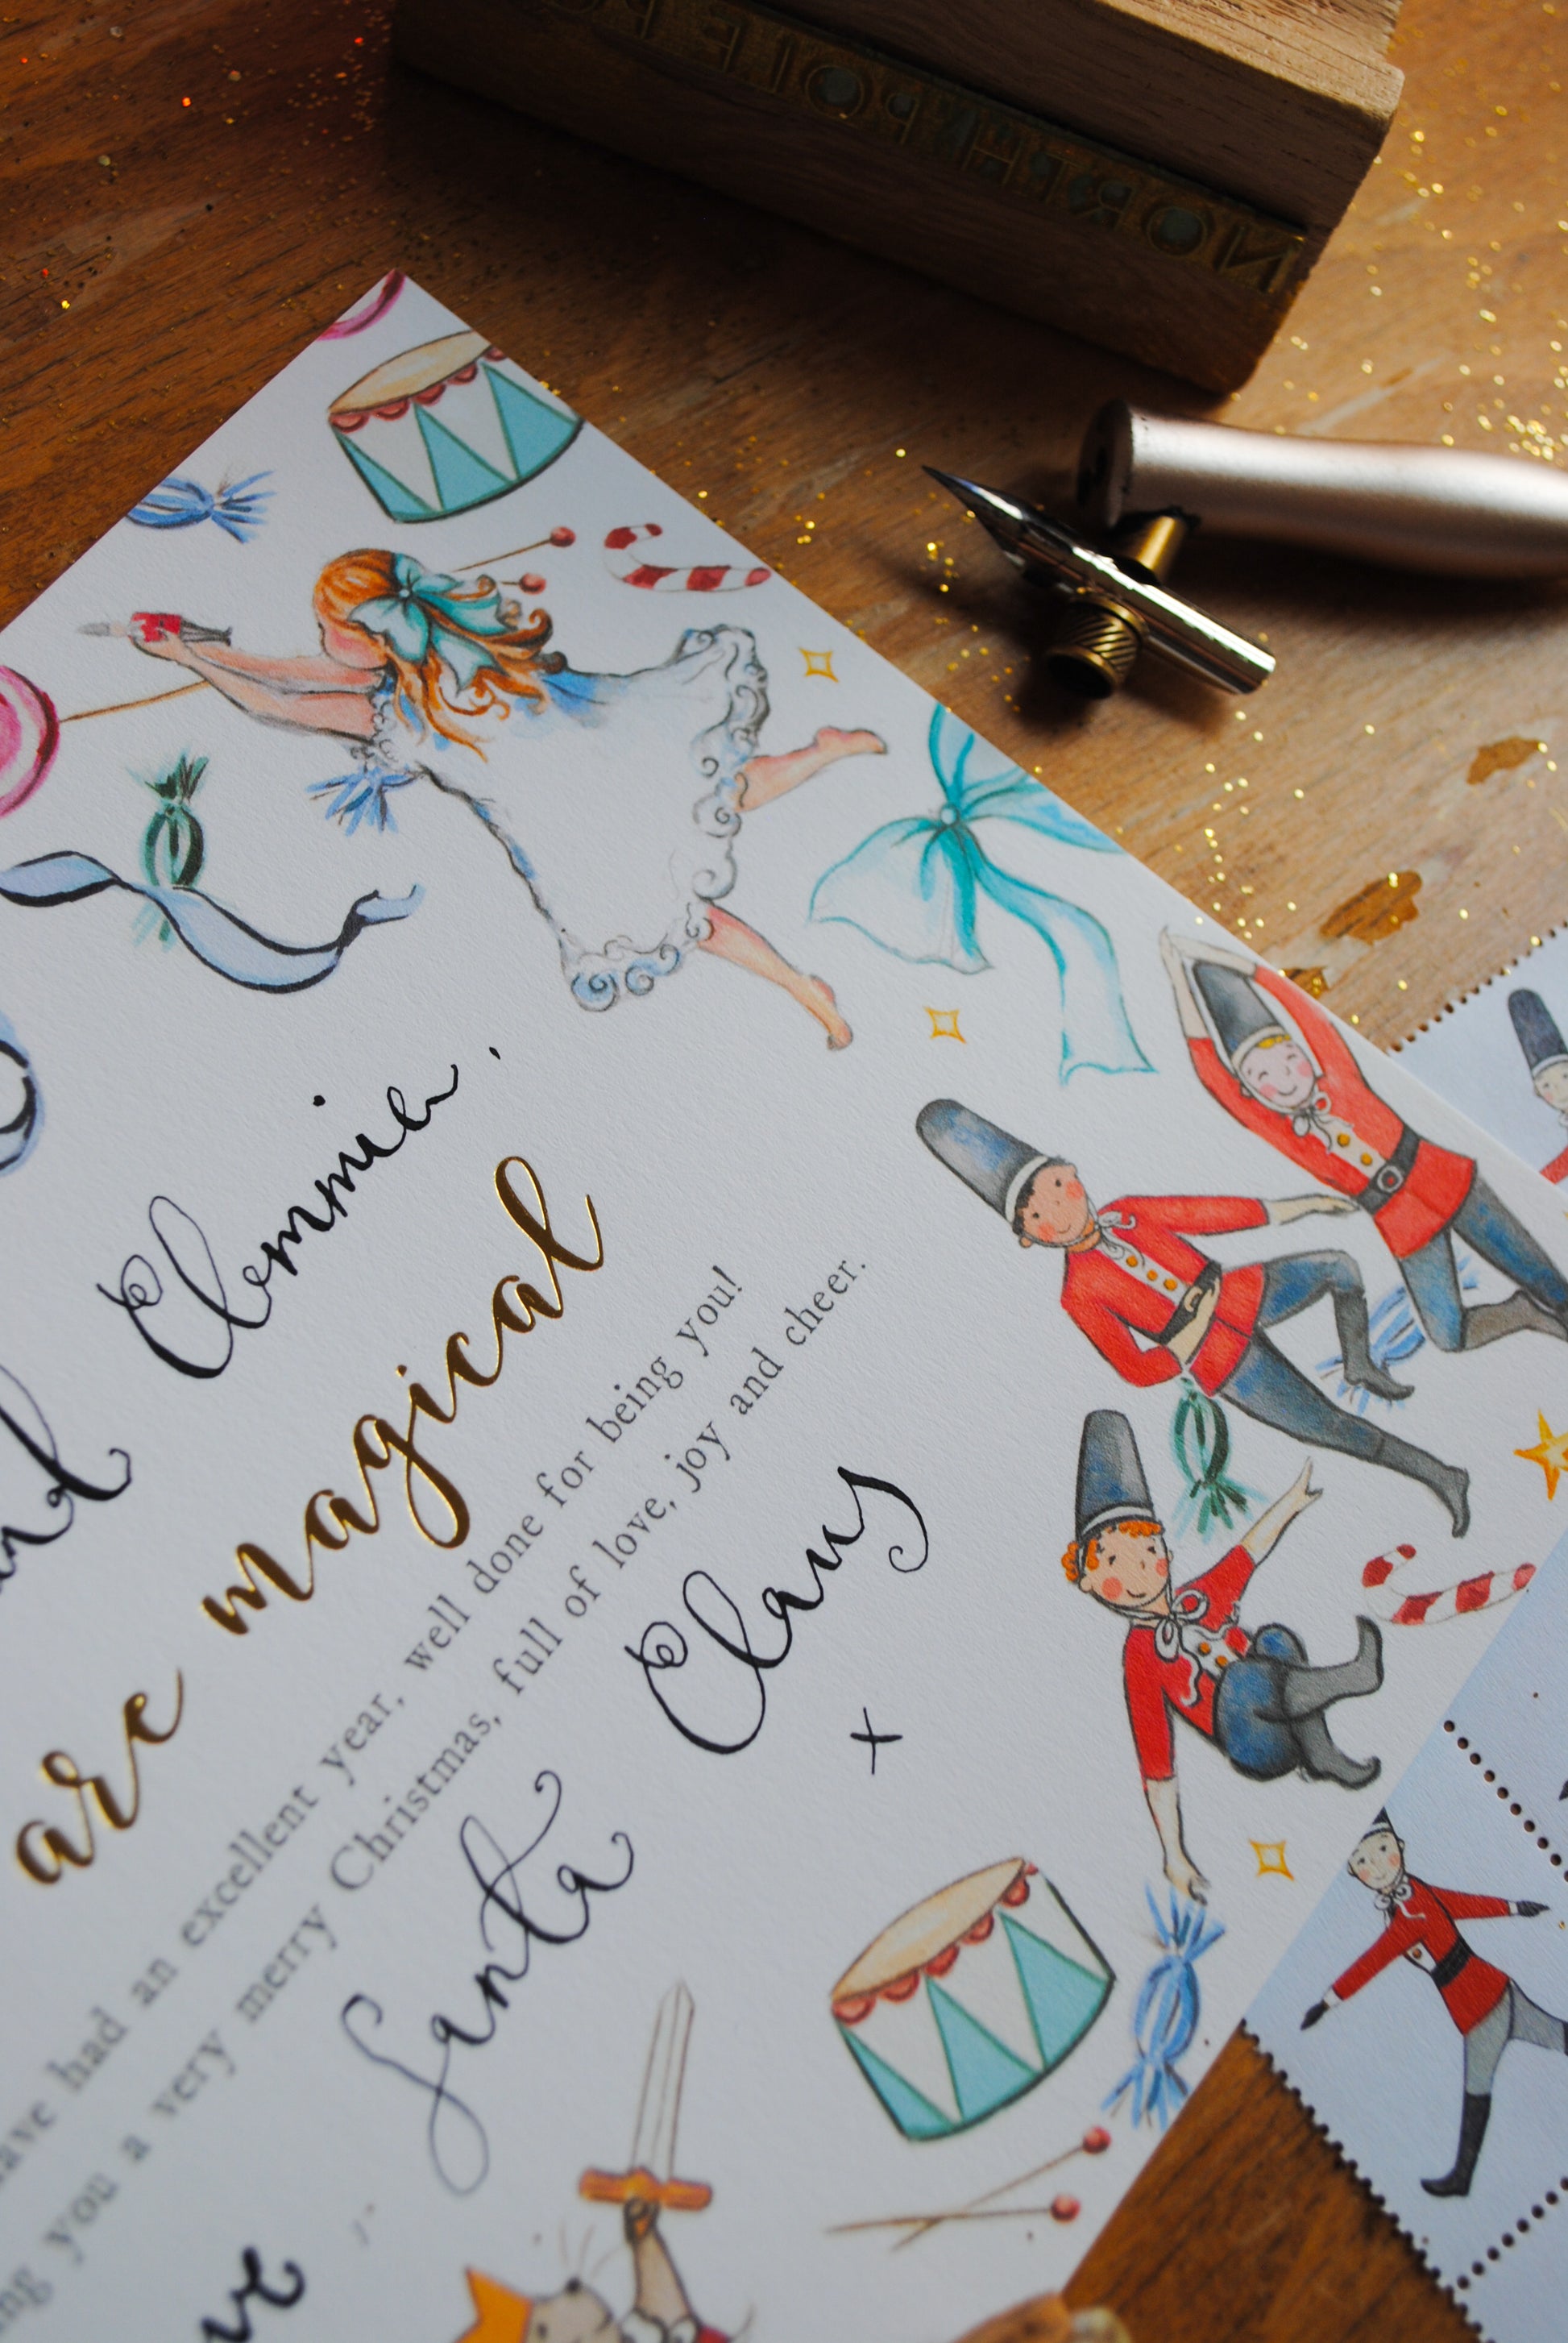 NORTH POLE
Clemmie,
are magical
had an excellent year, well done for being you!
you a very merry Christmas, full of love, joy and cheer.
Santa Claus
x